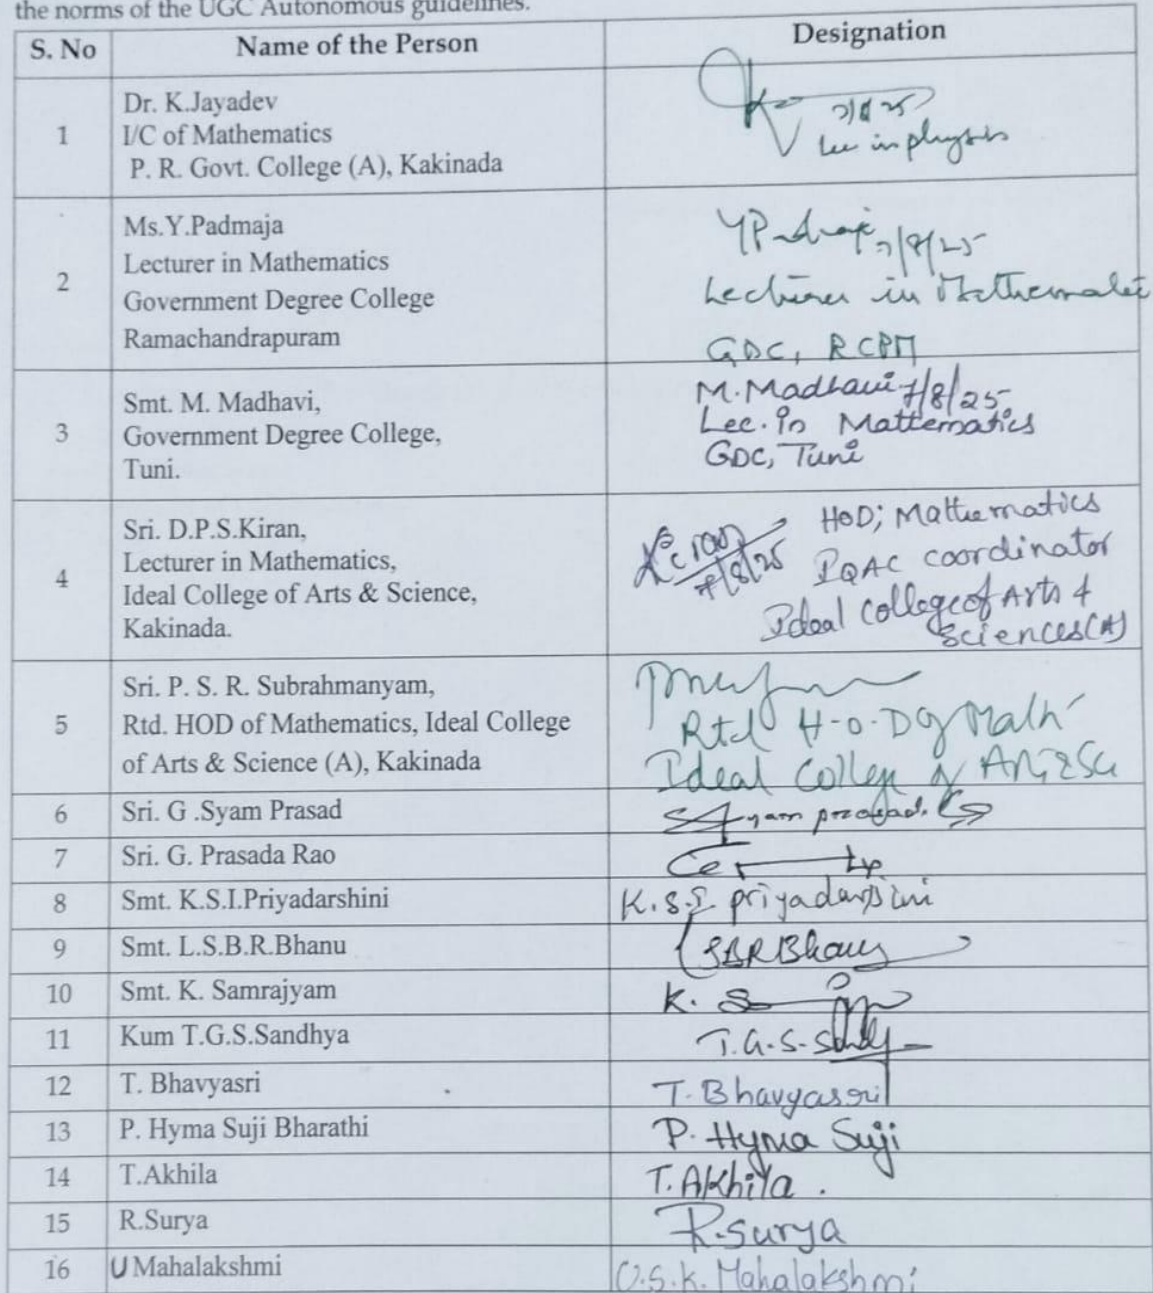 the norms of the UGC Autonomous guidelines.
S. No Name of the Person Designation
1
Dr. K.Jayadev
I/C of Mathematics
P. R. Govt. College (A), Kakinada
Lec in physics
2
Ms.Y.Padmaja
Lecturer in Mathematics
Government Degree College
Ramachandrapuram
7/8/25
Lecturer in Mathematics
GDC, RCPM
3
Smt. M. Madhavi,
Government Degree College,
Tuni.
M. Madhavi 7/8/25
Lec. in Mathematics
GDC, Tuni
4
Sri. D.P.S.Kiran,
Lecturer in Mathematics,
Ideal College of Arts & Science,
Kakinada.
Kiran
7/8/25
HOD; Mathematics
IQAC coordinator
Ideal College of Arts &
Sciences(A)
5
Sri. P. S. R. Subrahmanyam,
Rtd. HOD of Mathematics, Ideal College
of Arts & Science (A), Kakinada
Rtd H-O-D of Math
Ideal College of
6 Sri. G .Syam Prasad Syam prasad.
7 Sri. G. Prasada Rao
8 Smt. K.S.I.Priyadarshini K.S.I priyadarsini
9 Smt. L.S.B.R.Bhanu LSBRBhanu
10 Smt. K. Samrajyam K.
11 Kum T.G.S.Sandhya T.G.S.
12 T. Bhavyasri T. Bhavyasri
13 P. Hyma Suji Bharathi P. Hyma Suji
14 T.Akhila T. Akhila .
15 R.Surya R.Surya
16 U Mahalakshmi U.S.K. Mahalakshmi